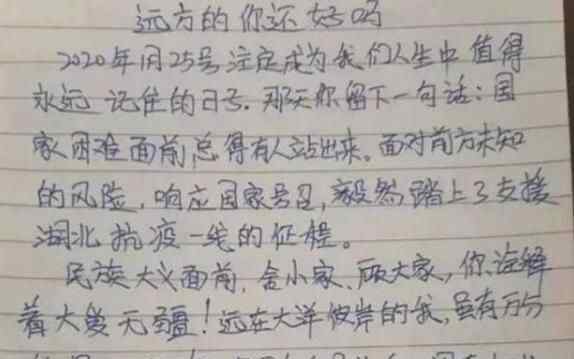 远方的你还好吗
2020年1月25号注定成为我们人生中值得
永远记住的日子.那天你留下一句话:国
家困难面前,总得有人站出来。面对前方未知
的风险,响应国家号召,毅然踏上了支援
湖北抗疫一线的征程。
民族大义面前,舍小家、顾大家,你诠释
着大爱无疆!远在大洋彼岸的我,虽有万分